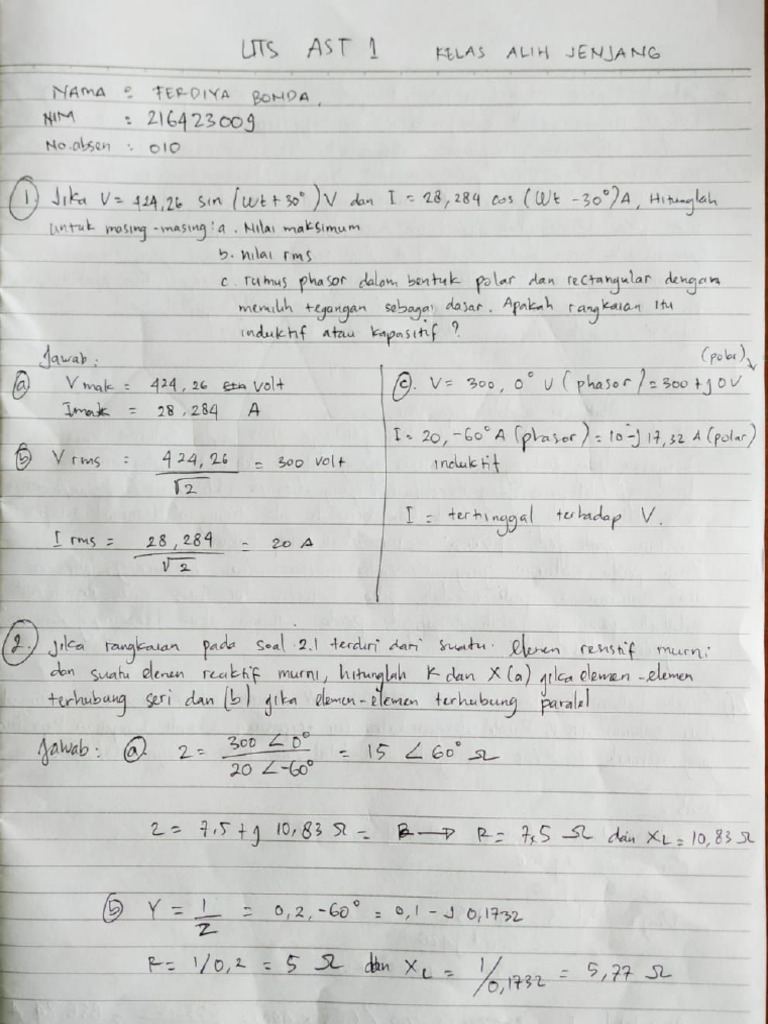 UTS AST 1 KELAS ALIH JENJANG
NAMA : FERDIYA BONDA.
NIM : 216423009
No.absen : 010
① Jika V= 424,26 sin (Wt + 30°) V dan I = 28,284 cos (Wt - 30°)A, Hitunglah
untuk masing-masing : a. Nilai maksimum
b. nilai rms
c. rumus phasor dalam bentuk polar dan rectangular dengan
memilih tegangan sebagai dasar. Apakah rangkaian itu
induktif atau kapasitif ?
Jawab :
ⓐ V mak = 424,26 volt
Imak = 28,284 A
ⓑ V rms = 424,26/√2 = 300 volt
I rms = 28,284/√2 = 20 A
(polar)
ⓒ. V= 300, 0° V (phasor) = 300 + j 0 V
I = 20, -60° A (phasor) = 10 - j 17,32 A (polar)
induktif
I = tertinggal terhadap V.
2. Jika rangkaian pada soal 2.1 terdiri dari suatu elemen resistif murni
dan suatu elemen reaktif murni, hitunglah R dan X (a) jika elemen-elemen
terhubung seri dan (b) jika elemen-elemen terhubung paralel
Jawab : ⓐ Z = 300 ∠0°/20 ∠-60° = 15 ∠60° Ω
Z = 7,5 + j 10,83 Ω = → R = 7,5 Ω dan XL = 10,83 Ω
ⓑ Y = 1/Z = 0,2, -60° = 0,1 - j 0,1732
R = 1/0,2 = 5 Ω dan XL = 1/0,1732 = 5,77 Ω